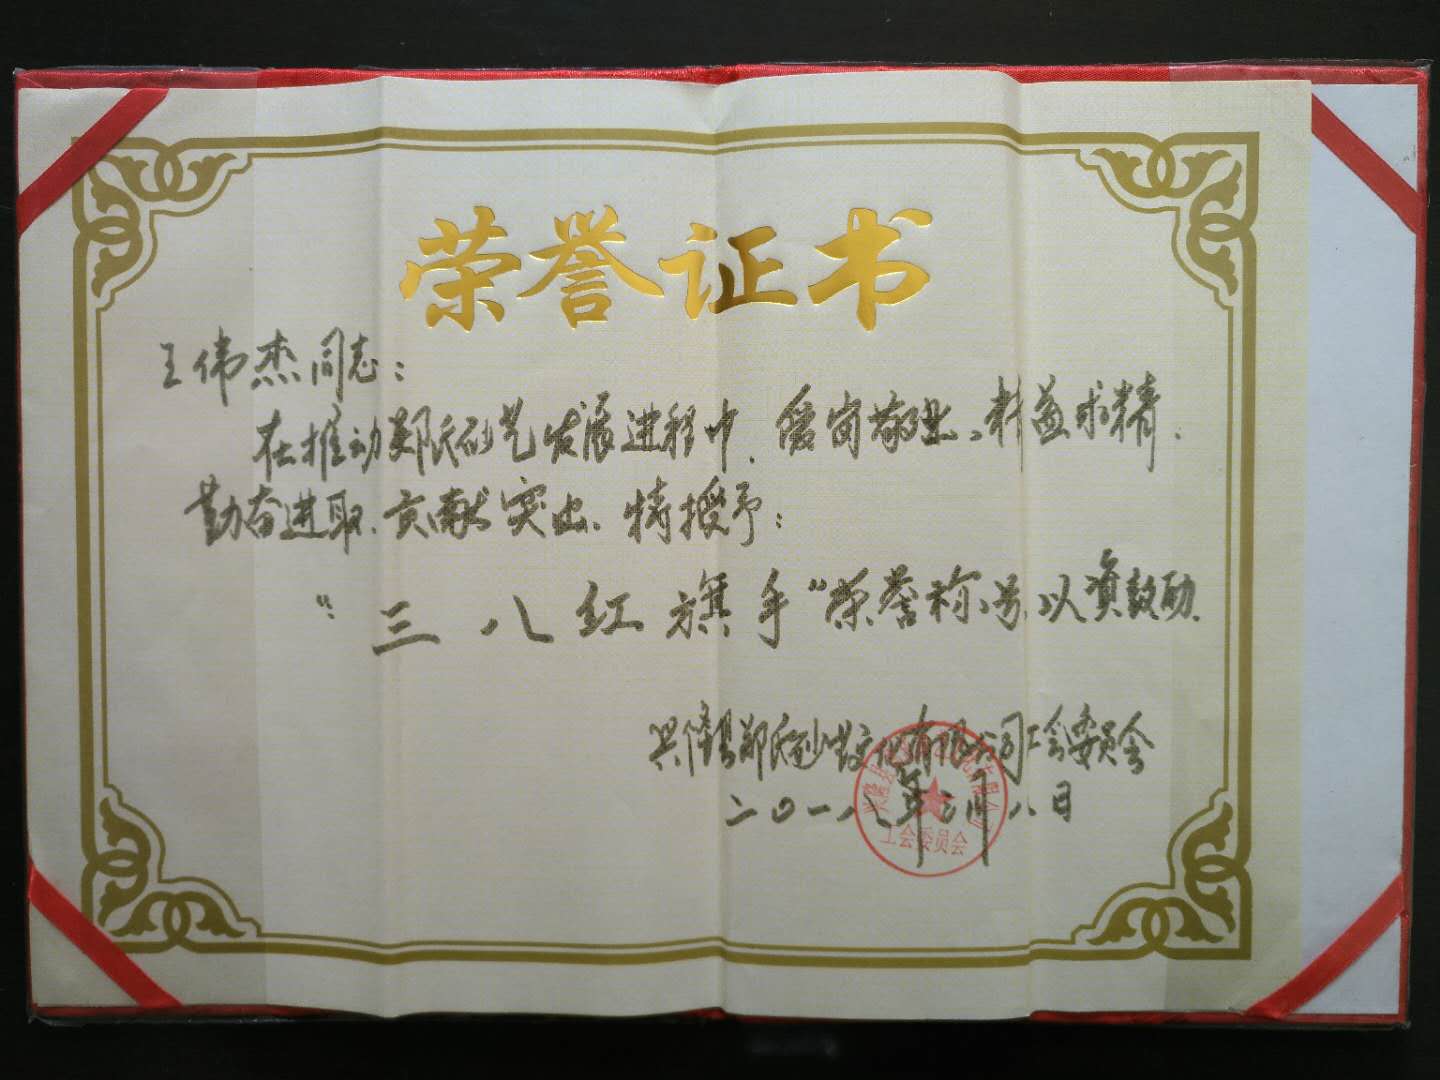 荣誉证书
王伟杰同志：
在推动郑氏砂艺发展进程中，爱岗敬业、精益求精，
勤奋进取，贡献突出，特授予：
“三八红旗手”荣誉称号，以资鼓励。
兴隆县郑氏砂艺文化有限公司工会委员会
二〇一八年三月八日
工会委员会